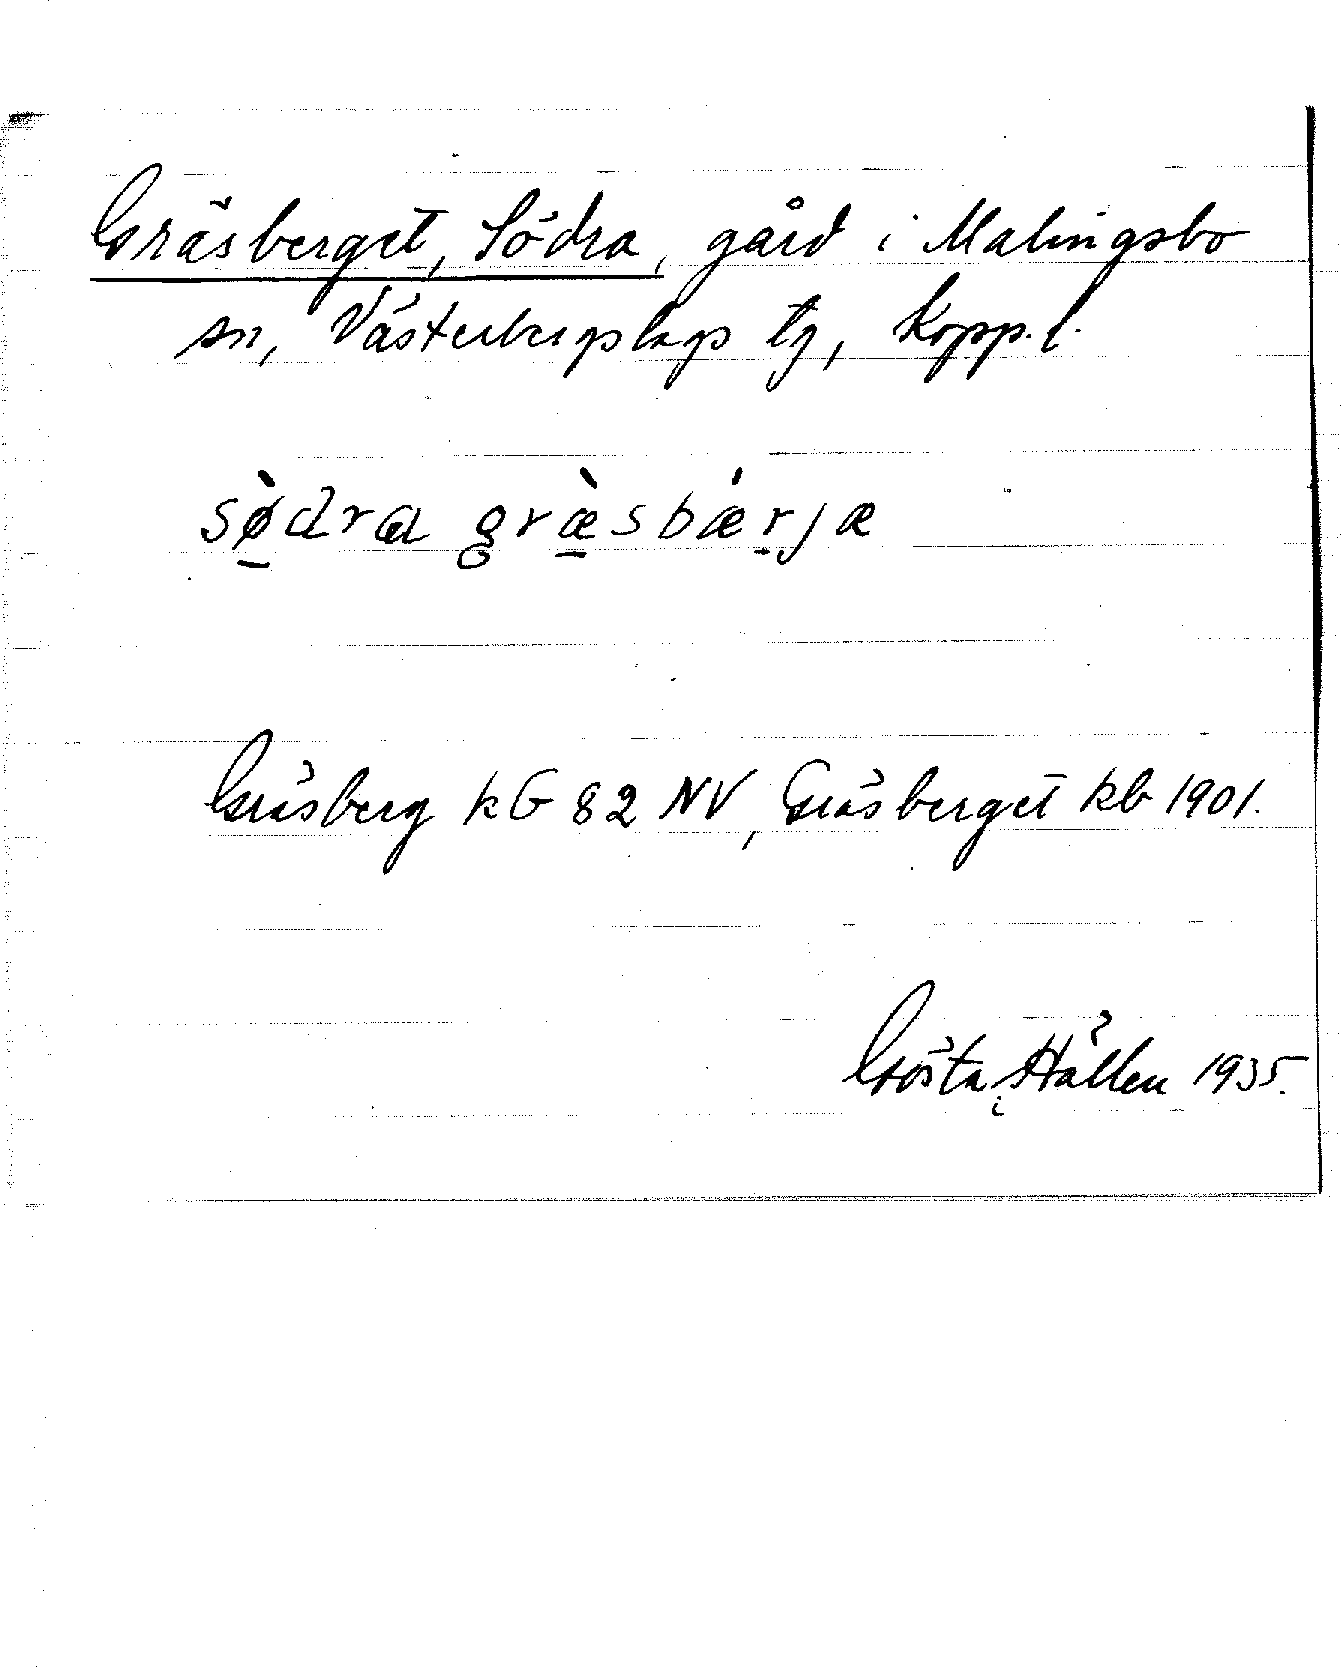 Gräsberget, Södra, gård i Malingsbo
sn, Västerbergslags tg, Kopp. l.
sø̀dra græ̀sbæ̀rjæ
Gräsberg kG 82 NV, Gräsberget kb 1901.
Gösta Hållen 1935.